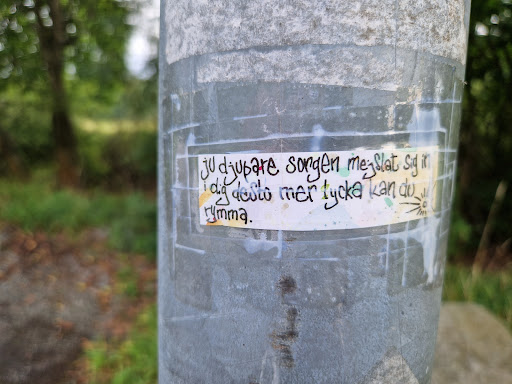 ju djupare sorgen mejslat sig in
i dig desto mer lycka kan du
rymma.